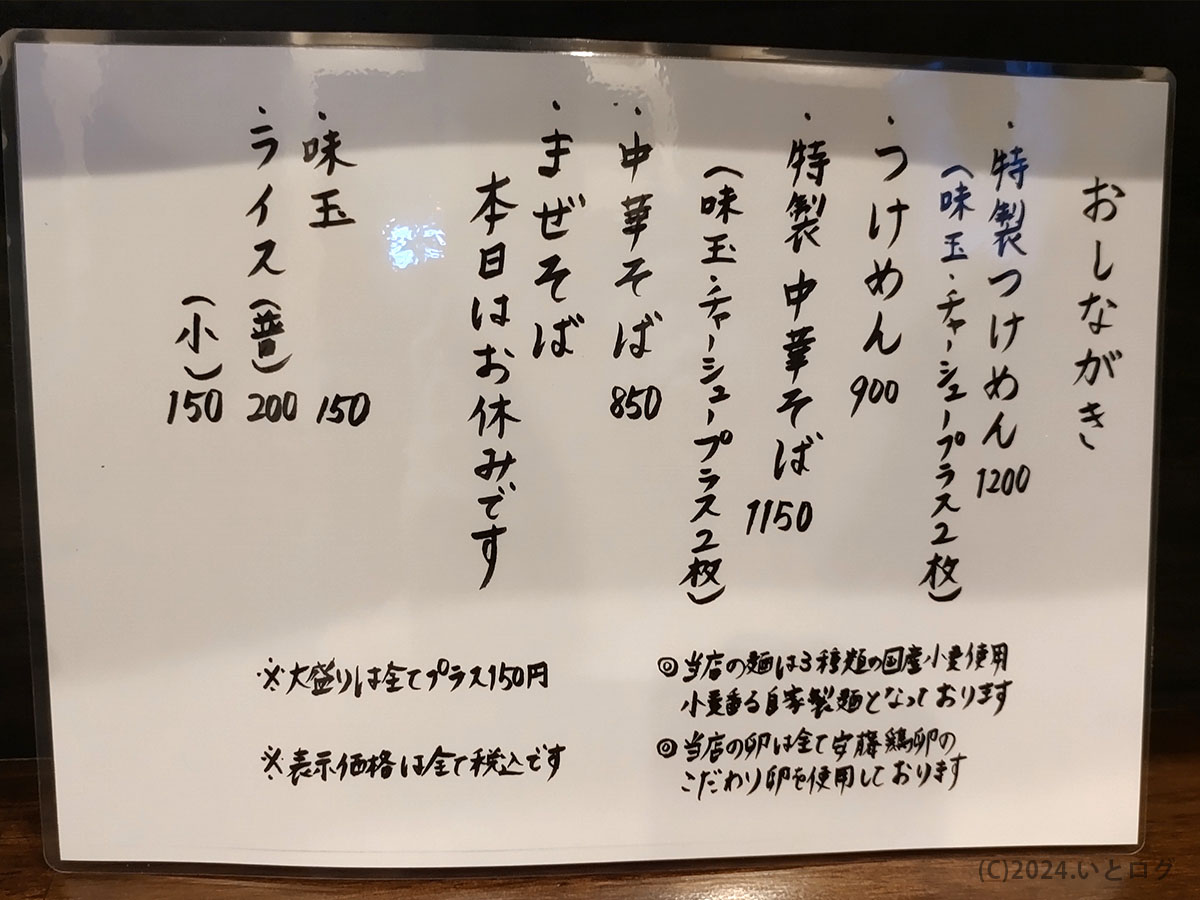 おしながき
・特製つけめん 1200
(味玉・チャーシュープラス2枚)
・つけめん 900
・特製中華そば 1150
(味玉・チャーシュープラス2枚)
・中華そば 850
・まぜそば
本日はお休みです
・味玉 150
・ライス(普) 200
(小) 150
◎当店の麺は3種類の国産小麦使用
小麦香る自家製麺となっております
◎当店の卵は全て安藤鶏卵の
こだわり卵を使用しております
※大盛りは全てプラス150円
※表示価格は全て税込です
(C)2024.いとログ